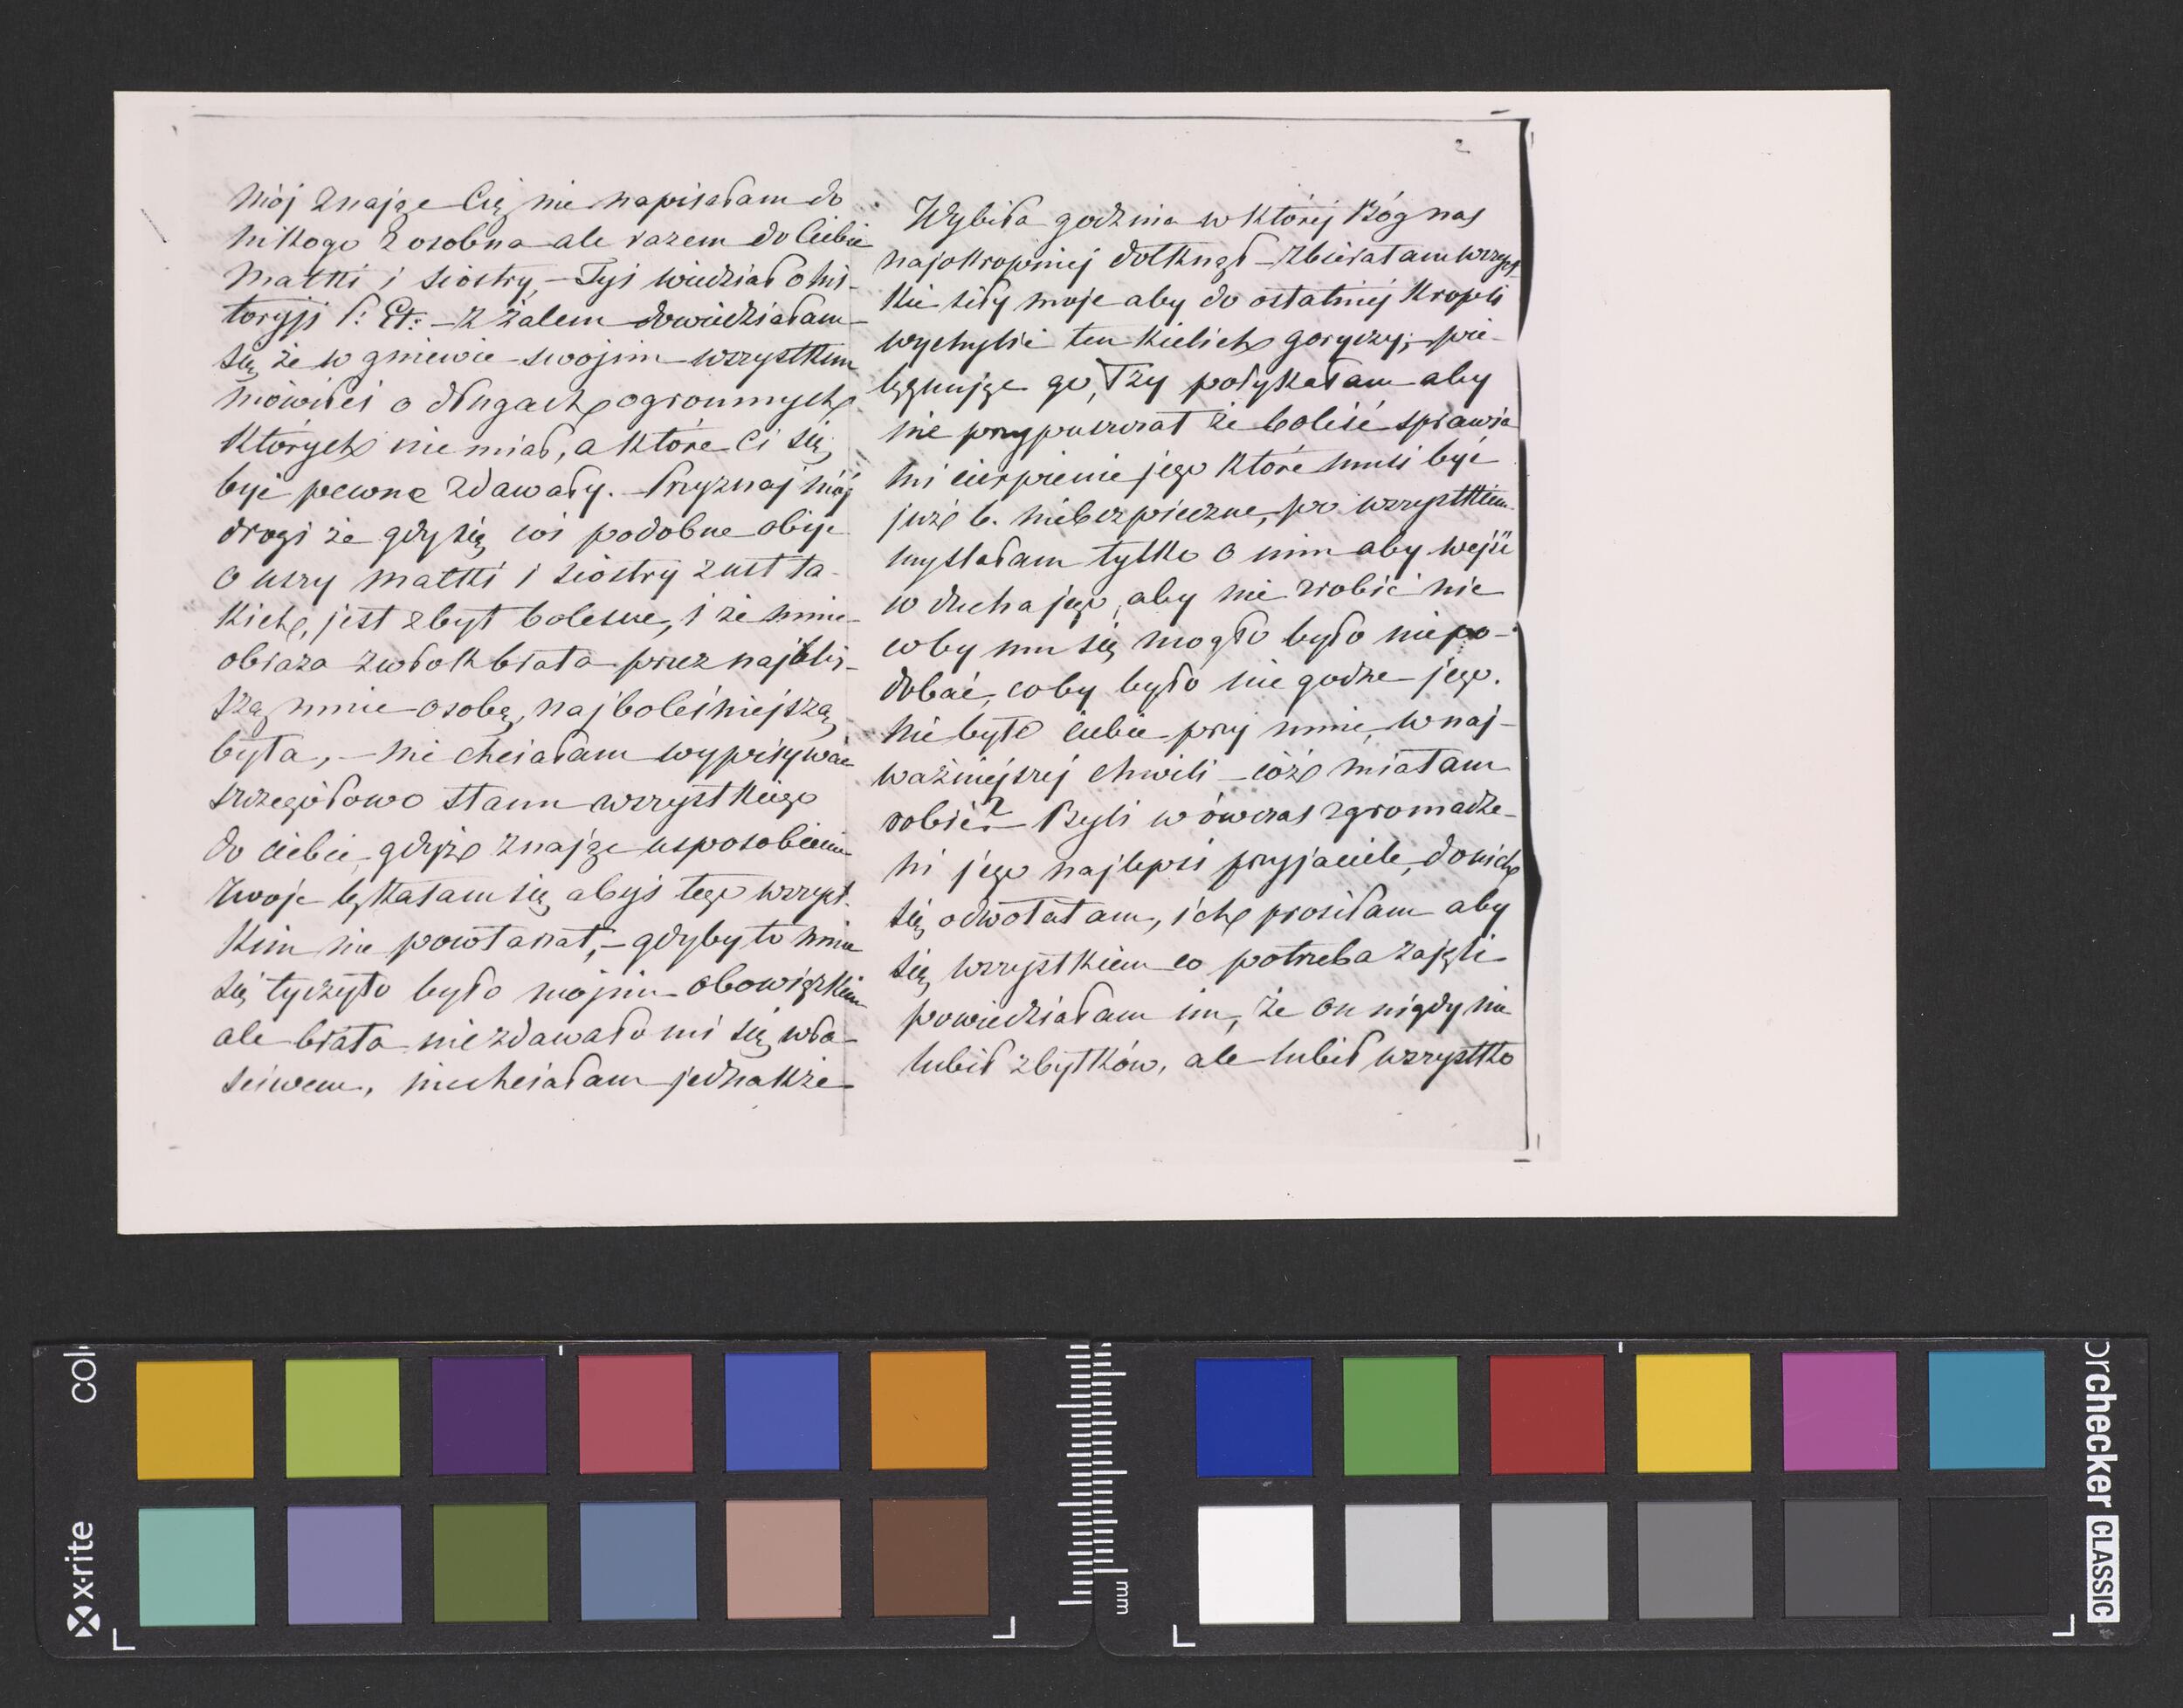 mój znając Cię nie napisałam do
nikogo z osobna ale razem do Ciebie
Matki i siostry, – Tyś wiedział o his-
toryji P: Et: – Z żalem dowiedziałam
się że w gniewie swojim wszystkim
mówiłeś o długach ogromnych
których nie miał, a które Ci się
być pewne zdawały. – Przyznaj mój
drogi że gdy się coś podobne obije
o uszy matki i siostry z ust ta-
kich, jest zbyt bolesne, i że mnie
obraza zwłok brata przez najbliż-
szą mnie osobę, najboleśniejszą
była, – nie chciałam wypisywać
szczegółowo stanu wszystkiego
do ciebie, gdyż znając usposobienie
Twoje lękałam się abyś tego wszyst-
kim nie powtarzał, – gdyby to mnie
się tyczyło było mojim obowiązkiem
ale brata nie zdawało mi się wła-
sciwem, niechciałam jednakże
2
Wybiła godzina w której Bóg nas
najokropniej dotknął – Zbierałam wszyst-
kie siły moje aby do ostatniej kropli
wychylić ten kielich goryczy; – pie-
lęgnując go, Łzy połykałam aby
nie przypuszczał że boleść sprawia
mi cierpienie jego które musi być
już b. niebezpieczne, po wszystkiem
myslałam tylko o nim aby wejść
w ducha jego, aby nie zrobić nic
coby mu się mogło było niepo-
dobać, coby było nie godne jego.
nie było ciebie przy mnie, w naj-
ważniejszej chwili – cóż miałam
robić? – Byli wówczas zgromadze-
ni jego najlepsi przyjaciele, do nich
się odwołałam, ich prosiłam aby
się wszystkiem co potrzeba zajęli
powiedziałam im, że on nigdy nie
lubił zbytków, ale lubił wszystko
x-rite
mm
orchecker CLASSIC